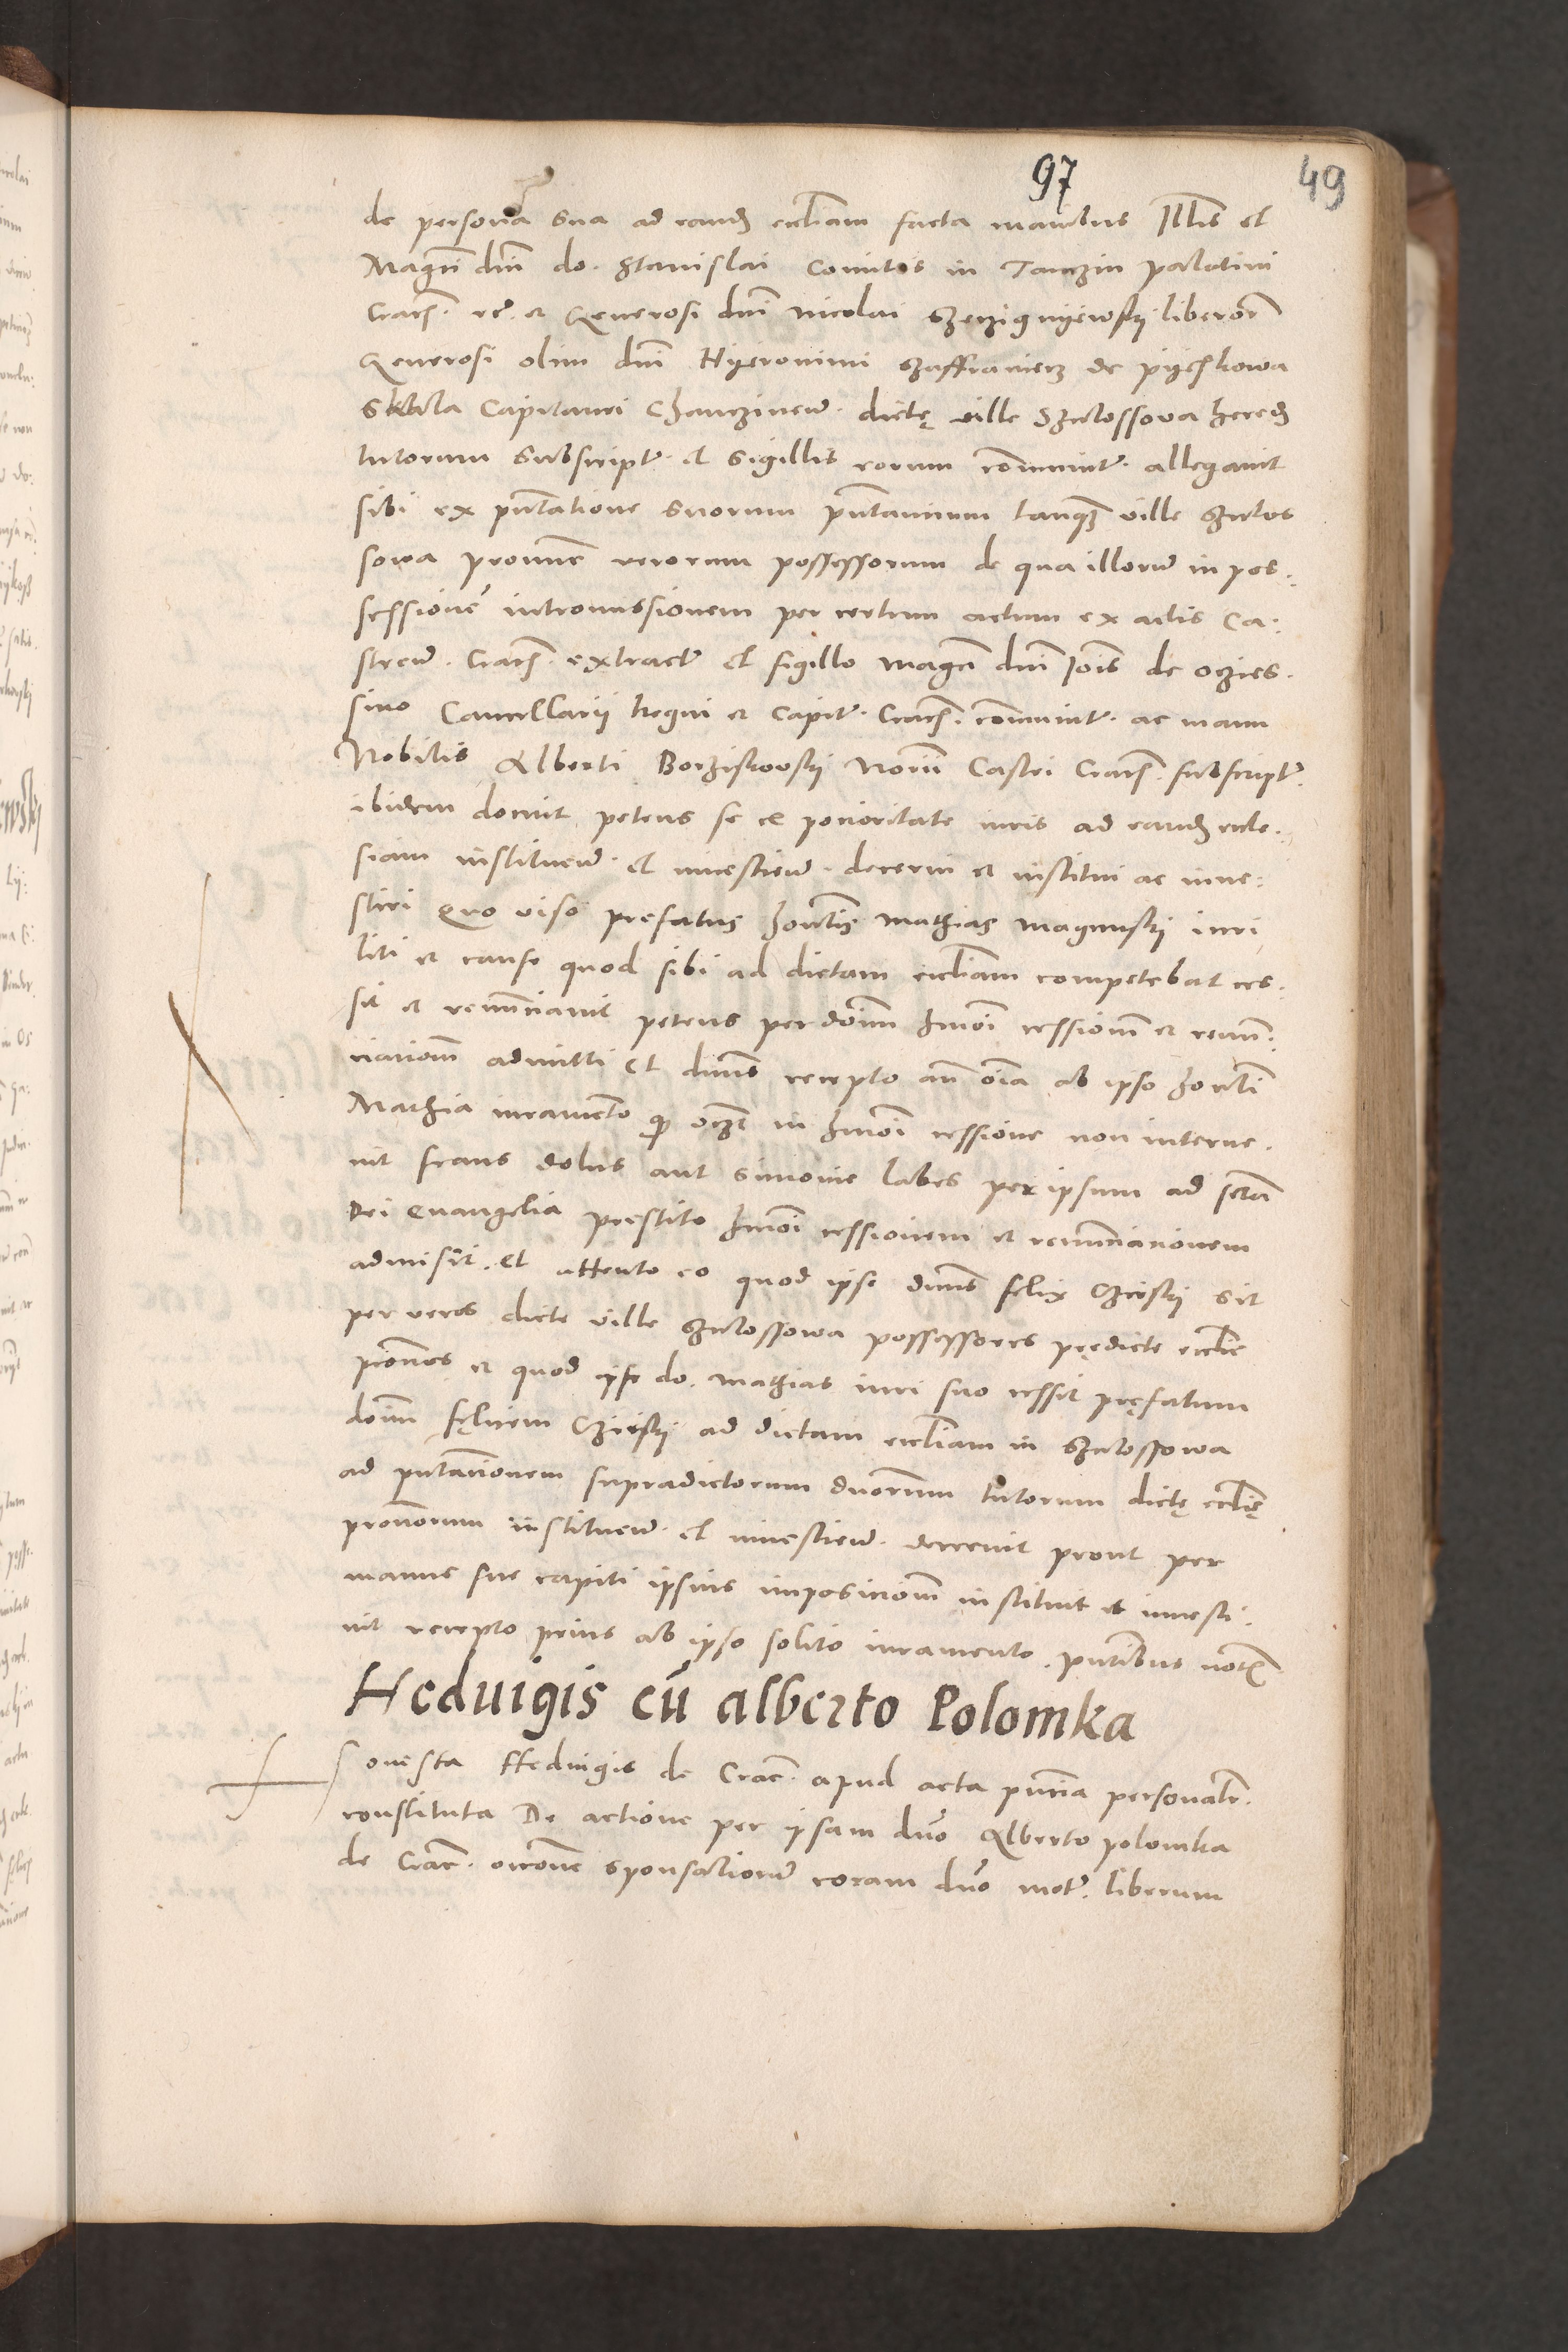 97
49
de persona sua ad eand eccliam facta manibus Illis et
Magci dni do. Stanislai Comitis in Tanczin palatini
Cracn. etc. et Generosi dni Nicolai Szczignyewsky liberor
Generosi olim dni Hyeronimi Szaffraniecz de pyeskowa
Skala Capitanei Chanczinen. dictę ville Szulossova hered
tutorum subscript. et sigillis eorum communit. allegavit
sibi ex pntatione suorum pntantium tanq ville Szulos
sowa veriorum possessorum de qua illorum in pos.
sessione intromissionem per certum actum ex actis Ca.
stren. Cracn. extract et sigillo magci dni Iois de oczies.
sino Cancellarii Regni et Capit. Cracn. communit. ac manu
Nobilis Alberti Borziskowsky Norii Castri Cracn. subscript.
ibidem docuit petens se ex potioritate iuris ad eand eccle.
siam instituen. et investien. decerni et institui ac inve.
stiri Quo viso prefatus honlis Mathias magnusky iuri
liti et cause quod sibi ad dictam eccliam competebat ces.
sit et renunciavit petens per doim hmoi cessionem et renun.
ciationem admitti Et dnus recepto an oia ab ipso honli
Mathia iuramento in hmoi cessione non interve.
nit fraus dolus aut simonie labes per ipsum ad scta
Dei evangelia prestito hmoi cessionem et renunciacionem
admisit. Et attento eo quod ipse dnus felix Cziesky sit
per veros dicte ville Szulossowa possessores predicte ecclie
pronos et quod ipse do. Mathias iuri suo cessit pręfatum
doim fęlicem Cziesky ad dictam eccliam in Szulossowa
ad pntacionem supradictorum duorum tutorum dictę ecclię
pronorum instituen. et investien. decrevit prout per
manus sue capiti ipsius imposicionem instituit et investi.
vit recepto prius ab ipso solito iuramento. pntibus
Heduigis cu alberto Polomka
Honesta Hedvigis de Crac. apud acta pntia personalr.
constituta De actione per ipsam dno Alberto polomka
de Crac. occone sponsalioru coram dno mot. liberum